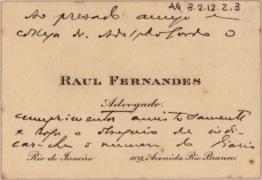 AG 3.2.12.2.3
Ao presado amigo e
collega dr. Adolpho Gordo o
RAUL FERNANDES
Advogado.
cumprimenta amistosamente
e roga o obsequio de indi-
car-lhe o numero do Diario
Rio de Janeiro 109, Avenida Rio Branco